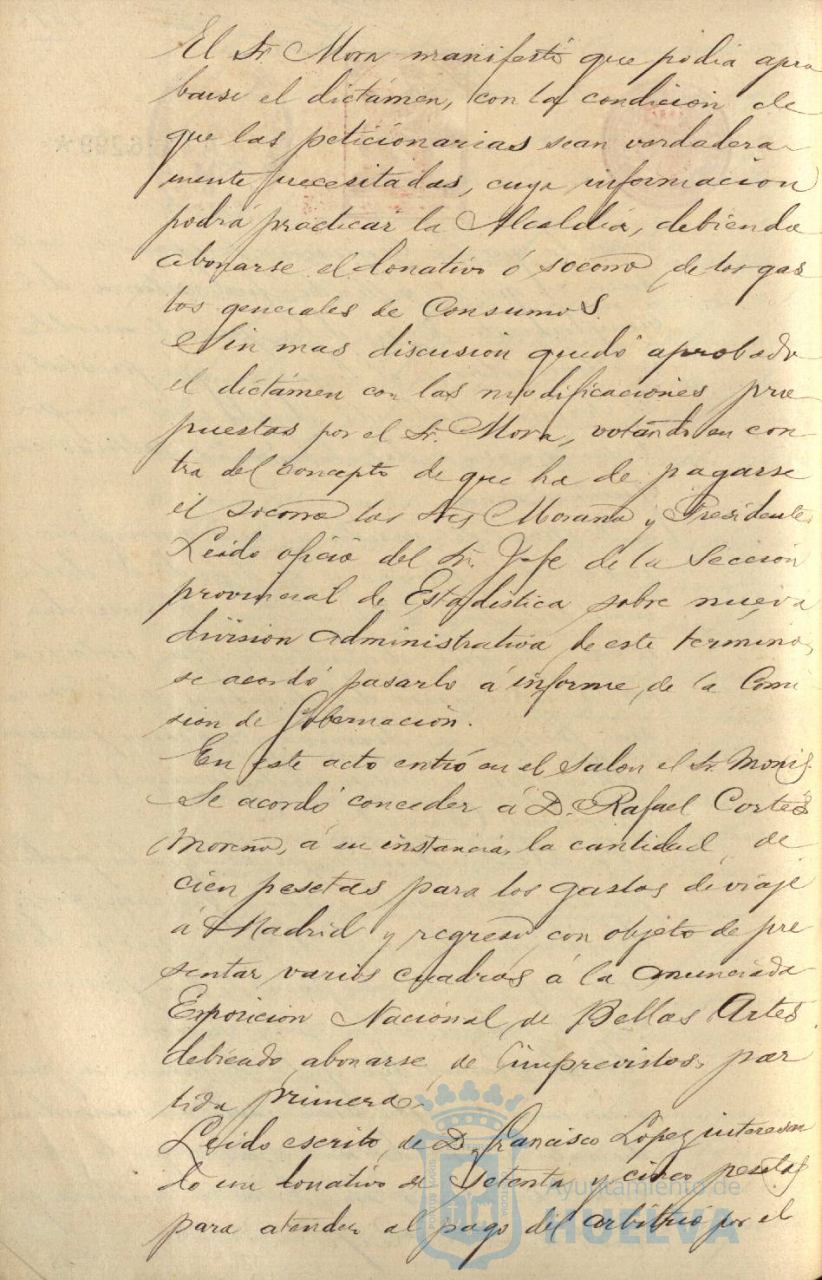 El Sr Mora manifestó que podia apro
barse el dictámen, con la condicion de
que las peticionarias sean verdadera-
mente necesitadas, cuya informacion
podrá practicar la Alcaldia, debiendo
abonarse el donativo ó socorro de los gas
tos generales de Consumos.
Sin mas discusion quedó aprobado
el dictámen con las modificaciones pro
puestas por el Sr. Mora, votando en con-
tra del concepto de que ha de pagarse
el socorro los Sres Morano y Presidente,
Leido oficio del Sr. Jefe de la Seccion
provincial de Estadistica sobre nueva
division administrativa de este término,
se acordó pasarlo á informe de la Comi
sion de Gobernacion.
En este acto entró en el salon el Sr. Monis.
Se acordó conceder á D. Rafael Cortés
Moreno, á su instancia, la cantidad de
cien pesetas para los gastos de viaje
á Madrid y regreso, con objeto de pre
sentar varios cuadros á la anunciada
Exposicion Nacional de Bellas Artes
debiendo abonarse de Imprevistos, par
tida primera.
Leido escrito de D. Francisco Lopez interesan
do un donativo de setenta y cinco pesetas
para atender al pago del arbitrio por el
Ayuntamiento de
HUELVA